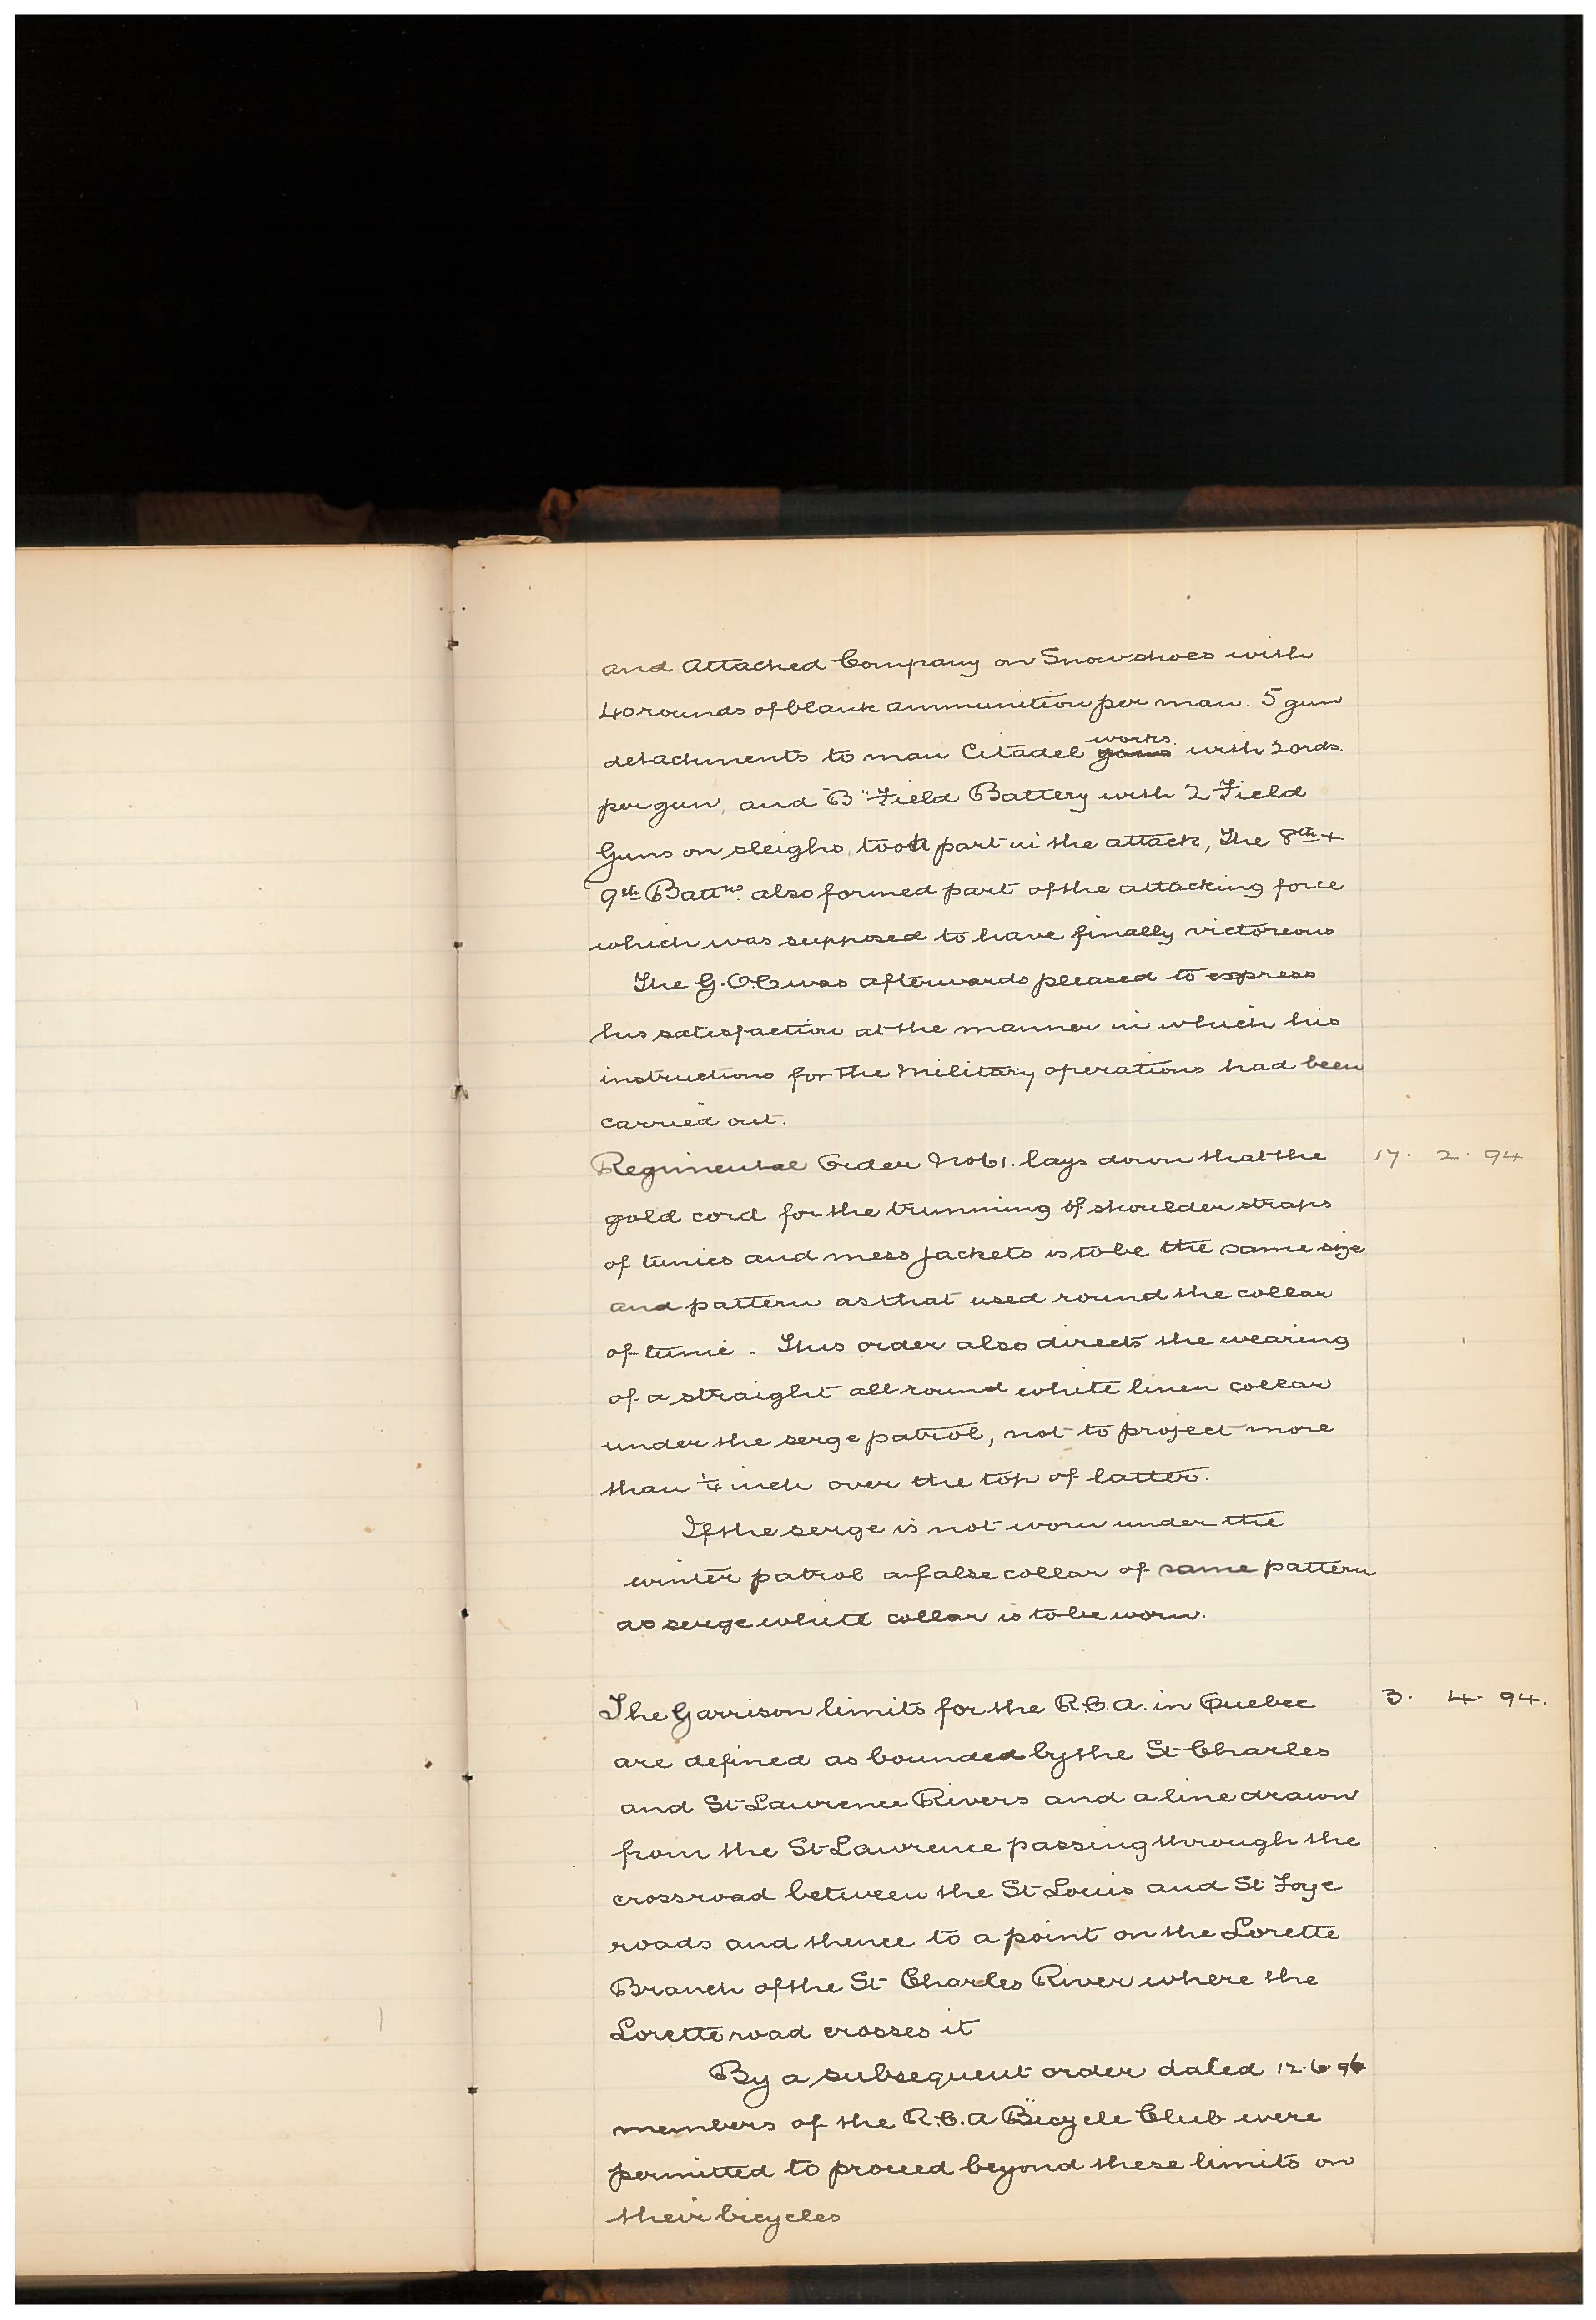 and Attached Company on Snowshoes with
40 rounds of blank ammunition per man. 5 gun
detachments to man Citadel guns works with 20rds.
per gun, and "B" Field Battery with 2 Field
Guns on sleighs, took part in the attack, The 8th &
9th Battns. also formed part of the attacking force
which was supposed to have finally victoreous
The G.O.C was afterwards pleased to express
his satisfaction at the manner in which his
instructions for the Military operations had been
carried out.
Regimental Order No 61. lays down that the 17. 2. 94
gold cord for the trimming of shoulder straps
of tunics and mess jackets is to be the same size
and pattern as that used round the collar
of tunic. This order also directs the wearing
of a straight all round white linen collar
under the serge patrol, not to project more
than 1/4 inch over the top of latter.
If the serge is not worn under the
winter patrol a false collar of same pattern
as serge white collar is to be worn.
The Garrison limits for the R.C.A. in Quebec 3. 4. 94.
are defined as bounded by the St Charles
and St Lawrence Rivers and a line drawn
from the St Lawrence passing through the
crossroad between the St Louis and St Foye
roads and thence to a point on the Lorette
Branch of the St Charles River where the
Lorette road crosses it
By a subsequent order dated 12.6.96
members of the R.C.A Bicycle Club were
permitted to proceed beyond these limits on
their bicycles